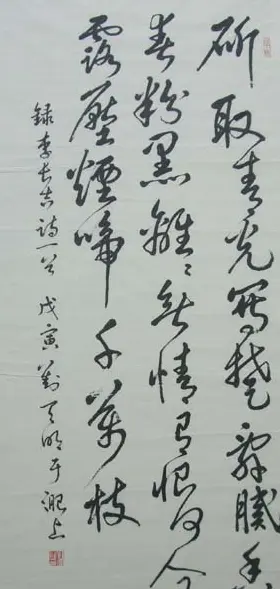 斫取青光寫楚辭膩香
春粉黑離離無情有恨何人
露壓煙啼千萬枝
錄李長吉詩一首 戊寅 天明于淝上